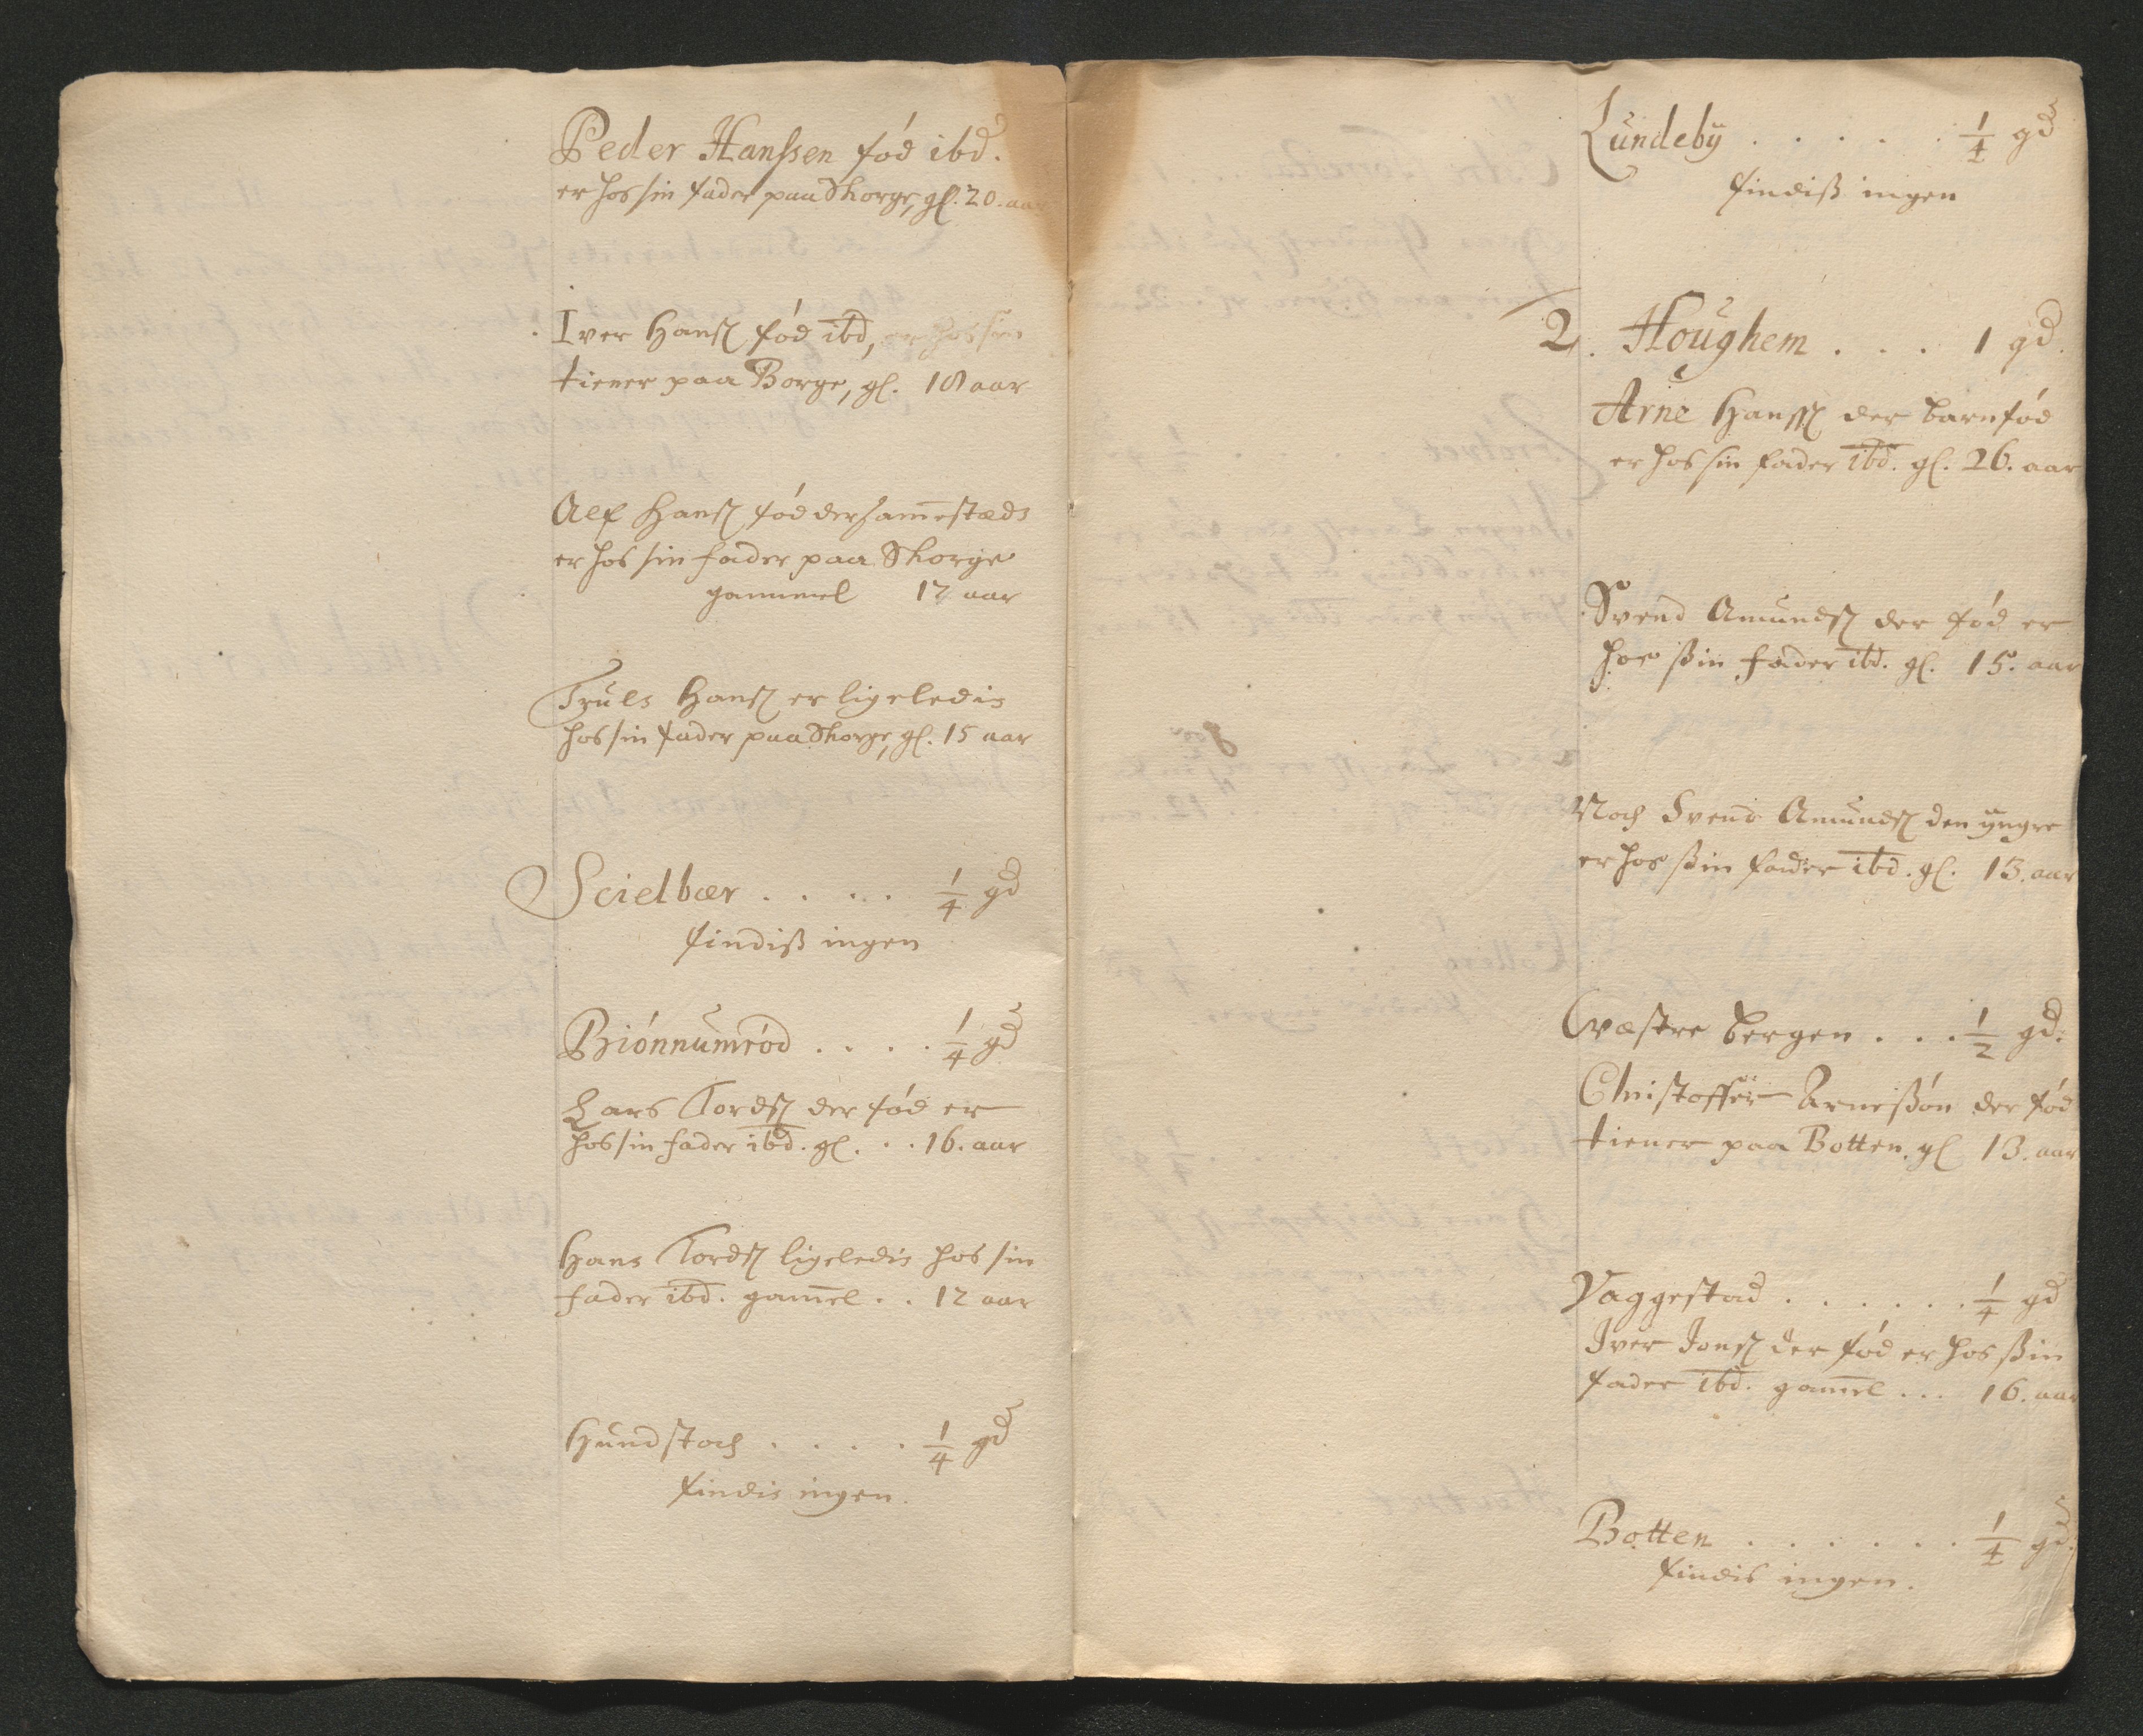 Peder Hanssen fód ibd.
er hos sin fader paa Skorge, gl. 20. aar
Iver Hans fód ibd, er hos sin
tiener paa Borge, gl. 18 aar
Alf Hans fód dersam̄estæds
er hos sin fader paa Skorge
gammel 17 aar
Truls Hans er ligeledis
hos sin fader paa Skorge, gl. 15 aar
Scielbær . . . . . 1/4 gd
findiß ingen
Biónnumród . . . . 1/4 gd
Lars Tords der fód er
hos sin fader ibd. gl. . . 16. aar
Hans Tords ligeledis hos sin
fader ibd. gam̄el . . 12 aar
Hundstoch . . . . 1/4 gd
findis ingen.
Lundebÿ . . . . . 1/4 gd
findiß ingen
2. Houghem . . . 1 gd.
Arne Hanss der barnfód
er hos sin fader ibd. gl. 26. aar
Svend Amunds der fód er
hos ßin fader ibd. gl. 15. aar
Noch Svend Amunds den ÿngre
er hos ßin fader ibd. gl. 13. aar
Væstre bergen . . . 1/2 gd.
Christoffer Arneßón der fód
tiener paa Botten. gl 13. aar
Vaggestad . . . . . . 1/4 gd
Iver Jons der fód er hos ßin
fader ibd. gam̄el . . . 16. aar
Botten . . . . . . 1/4 gd.
findis ingen.